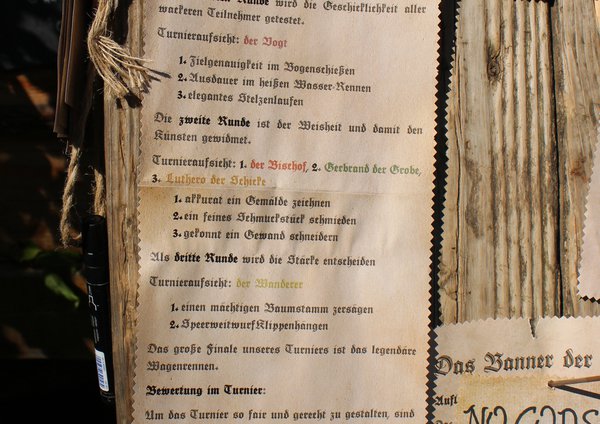 Runde wird die Geschicklichkeit aller
wackeren Teilnehmer getestet.
Turnieraufsicht: der Vogt
1. Zielgenauigkeit im Bogenschießen
2. Ausdauer im heißen Wasser-Rennen
3. elegantes Stelzenlaufen
Die zweite Runde ist der Weisheit und damit den
Künsten gewidmet.
Turnieraufsicht: 1. der Bischof, 2. Gerbrand der Grobe,
3. Luthero der Schicke
1. akkurat ein Gemälde zeichnen
2. ein feines Schmuckstück schmieden
3. gekonnt ein Gewand schneidern
Als dritte Runde wird die Stärke entscheiden
Turnieraufsicht: der Wanderer
1. einen mächtigen Baumstamm zersägen
2. Speerweitwurf Klippenhängen
Das große Finale unseres Turniers ist das legendäre
Wagenrennen.
Bewertung im Turnier:
Um das Turnier so fair und gerecht zu gestalten, sind
Das Banner der
Aufl